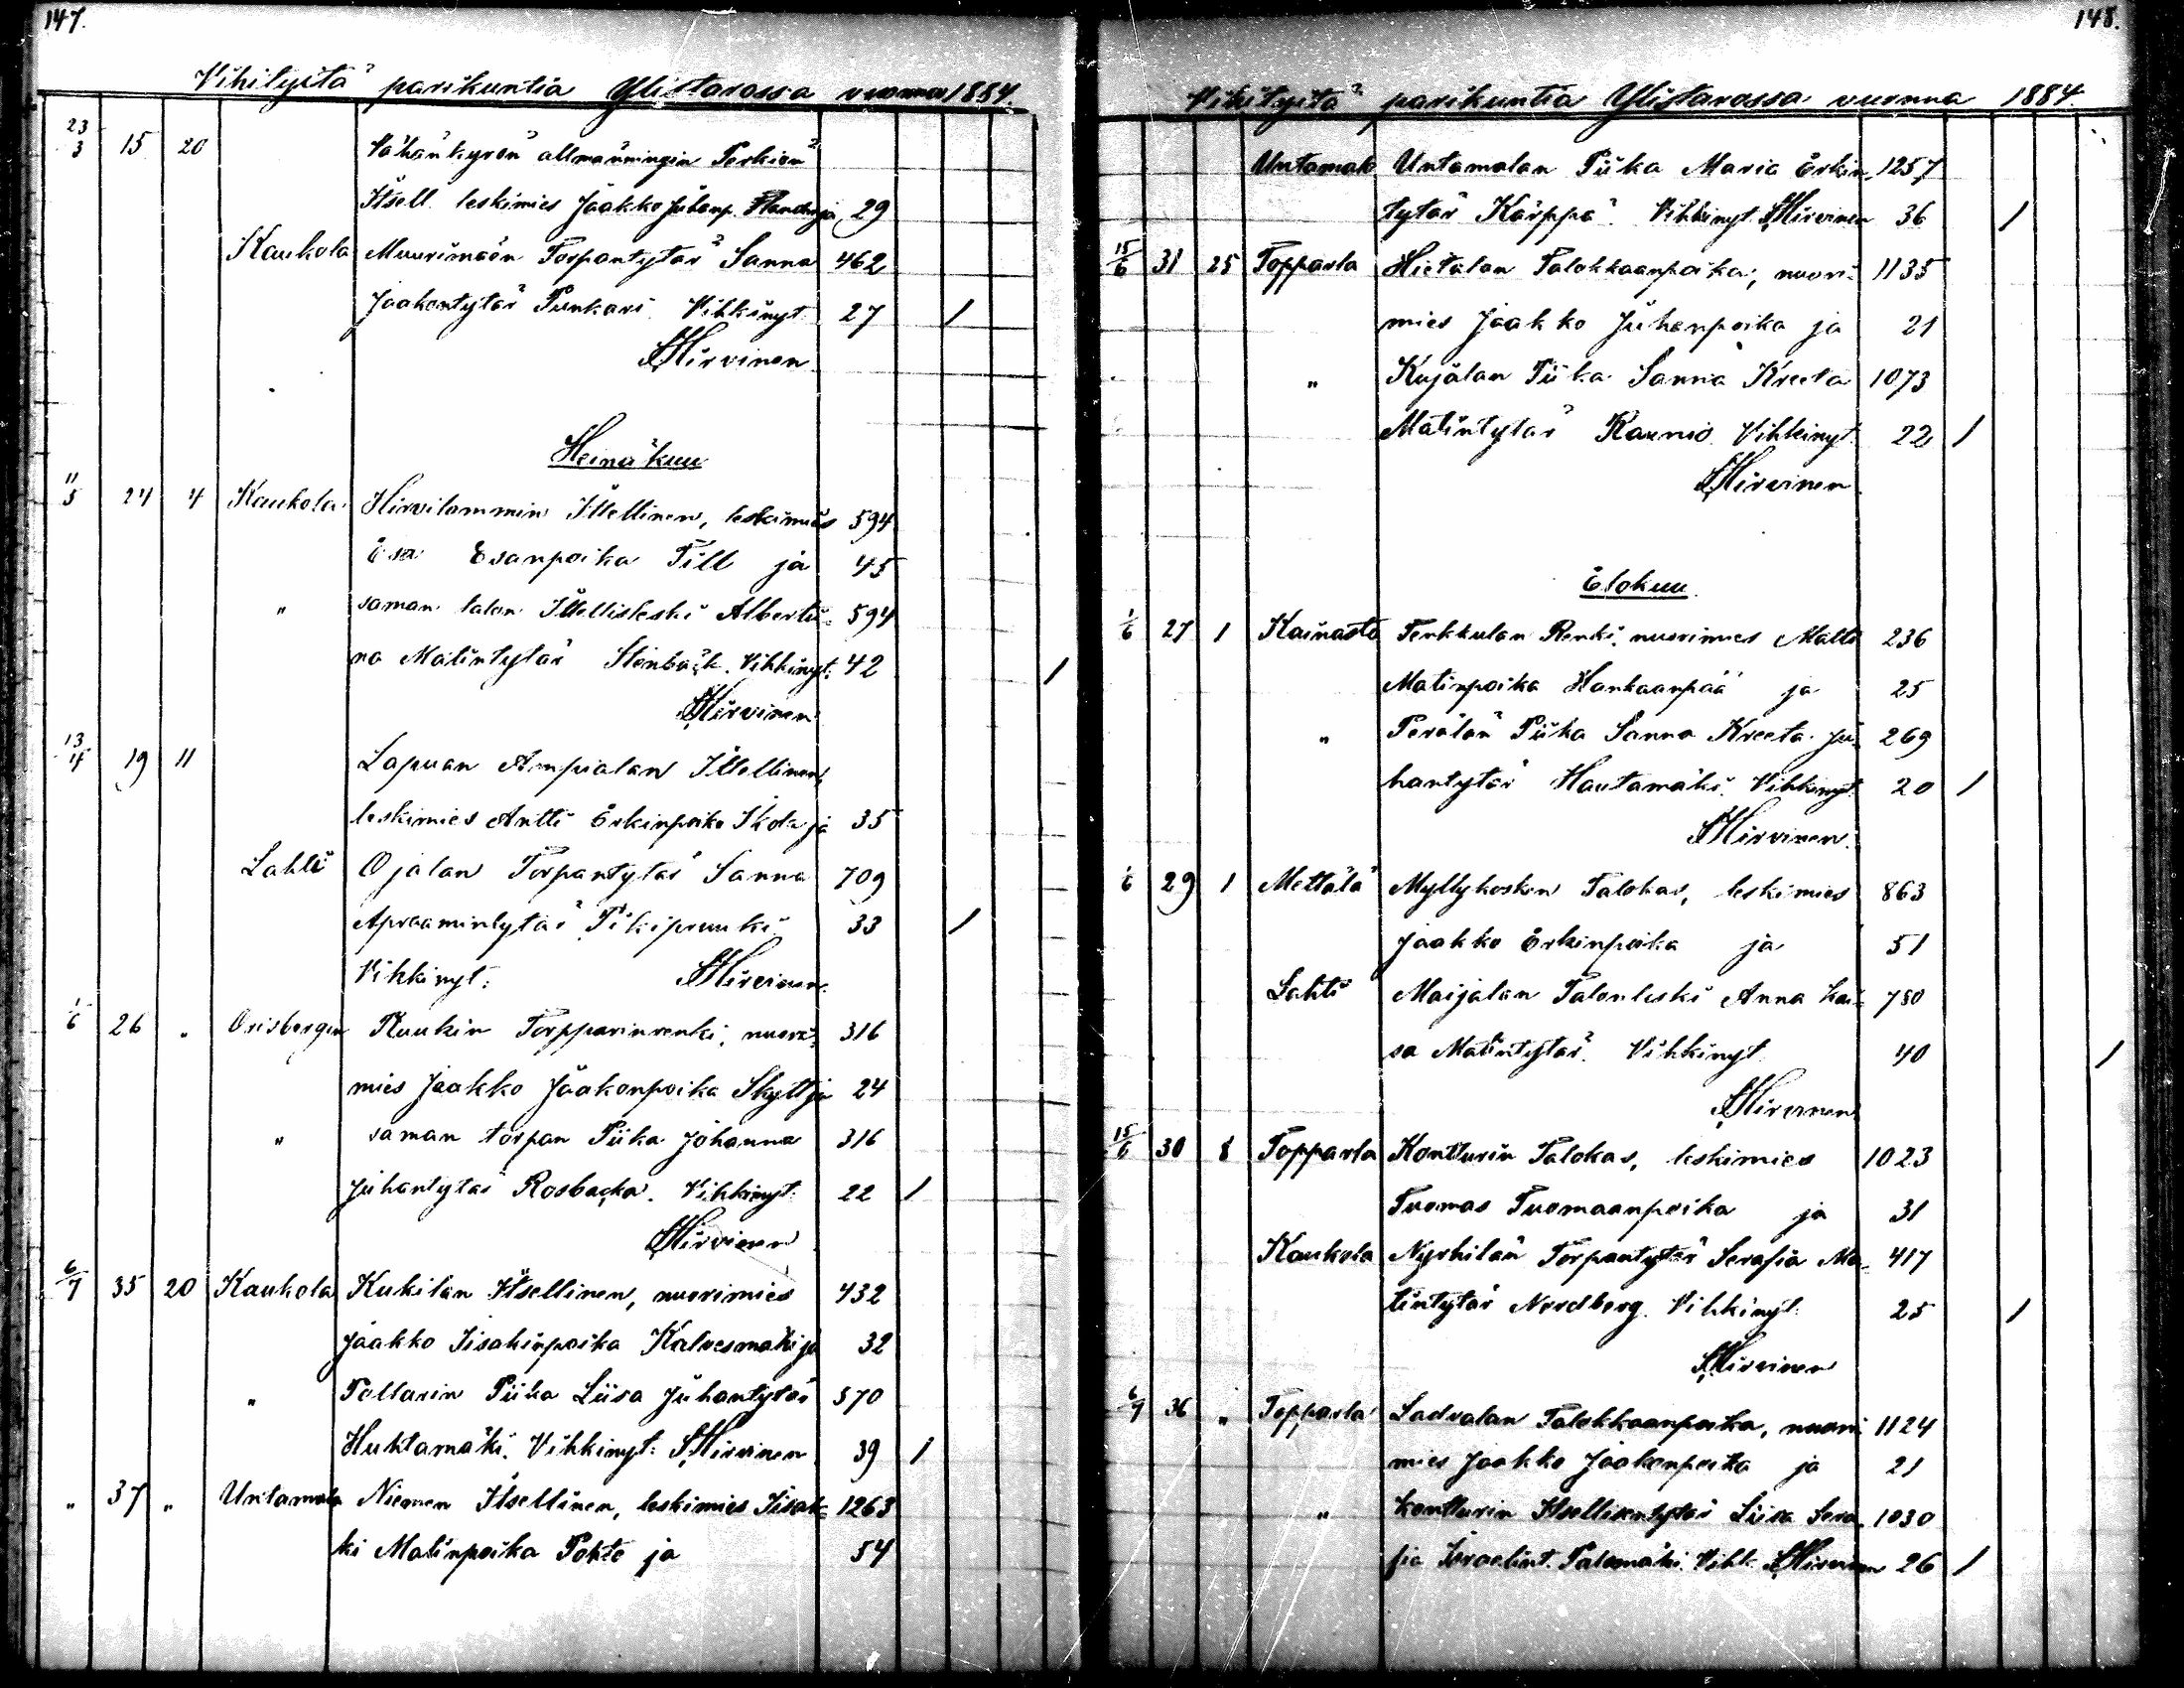 147.
Vihityitä parikuntia Ylistarossa vuonna 1884.
23/3 15 20 Vähänkyrön allmänningin Perkiön
Itsell. leskimies Jaakko Juhanp. ja 29
Kaukola Muurimäen Torpantytär Sanna 462
Jaakontytär Punkari Vihkinyt 27 /
SHirvinen
Heinäkuu
11/5 24 4 Kaukola Hirvilammin Itsellinen, leskimies 594
Esa Esanpoika Till ja 45
" saman talon Itsellisleski Albertii- 594
na Matintytär Stenbäck. Vihkinyt: 42 /
SHirvinen
13/4 19 11 Lapuan Ampialan Itsellinen,
leskimies Antti Erkinpoika Ikola ja 35
Lahti Ojalan Torpantytär Sanna 709
Apraamintytär Pikipruuki 33 /
Vihkinyt: SHirvinen
1/6 26 " Orisbergin Kuukin Torpparinrenki, nuori- 316
mies Jaakko Jaakonpoika Skytt ja 24
" saman torpan Piika Johanna 316
Juhantytär Rosbacka. Vihkinyt: 22 /
SHirvinen
6/7 35 20 Kaukola Kukilan Itsellinen, nuorimies 432
Jaakko Iisakinpoika Kalvesmäki ja 32
" Pollarin Piika Liisa Juhantytär 570
Huhtamäki. Vihkinyt: SHirvinen 39 /
" 37 " Untamala Niemen Itsellinen, leskimies Iisak- 1263
ki Matinpoika Pohto ja 54
148.
Vihityitä parikuntia Ylistarossa vuonna 1884.
Untamala Untamalan Piika Maria Erkin- 1257
tytär Kärppä. Vihkinyt SHirvinen 36 /
15/6 31 25 Topparla Hietalan Talokkaanpoika, nuori- 1135
mies Jaakko Juhanpoika ja 21
" Kujalan Piika Sanna Kreeta 1073
Matintytär Raunio Vihkinyt 22 /
SHirvinen
Elokuu.
1/6 27 1 Kainasto Tenkkulan Renki, nuorimies Matti 236
Matinpoika Hankaanpää ja 25
" Perälän Piika Sanna Kreeta Ju- 269
hantytär Hautamäki. Vihkinyt: 20 /
SHirvinen.
1/6 29 1 Mettälä Myllykosken Talokas, leskimies 863
Jaakko Erkinpoika ja 51
Lahti Maijalan Talonleski Anna Kai- 780
sa Matintytär. Vihkinyt 40 /
SHirvinen
15/6 30 8 Topparla Kontturin Talokas, leskimies 1023
Tuomas Tuomaanpoika ja 31
Kaukola Nyrhilän Torpantytär Serafia Ma- 417
tintytär Nordberg. Vihkinyt: 25 /
SHirvinen
6/7 36 " Topparla Ladvalan Talokkaanpoika, nuori- 1124
mies Jaakko Jaakonpoika ja 21
" Kontturin Itsellisentytär Liisa Sera- 1030
fia Israelint. Palomäki. Vihk. SHirvinen 26 /